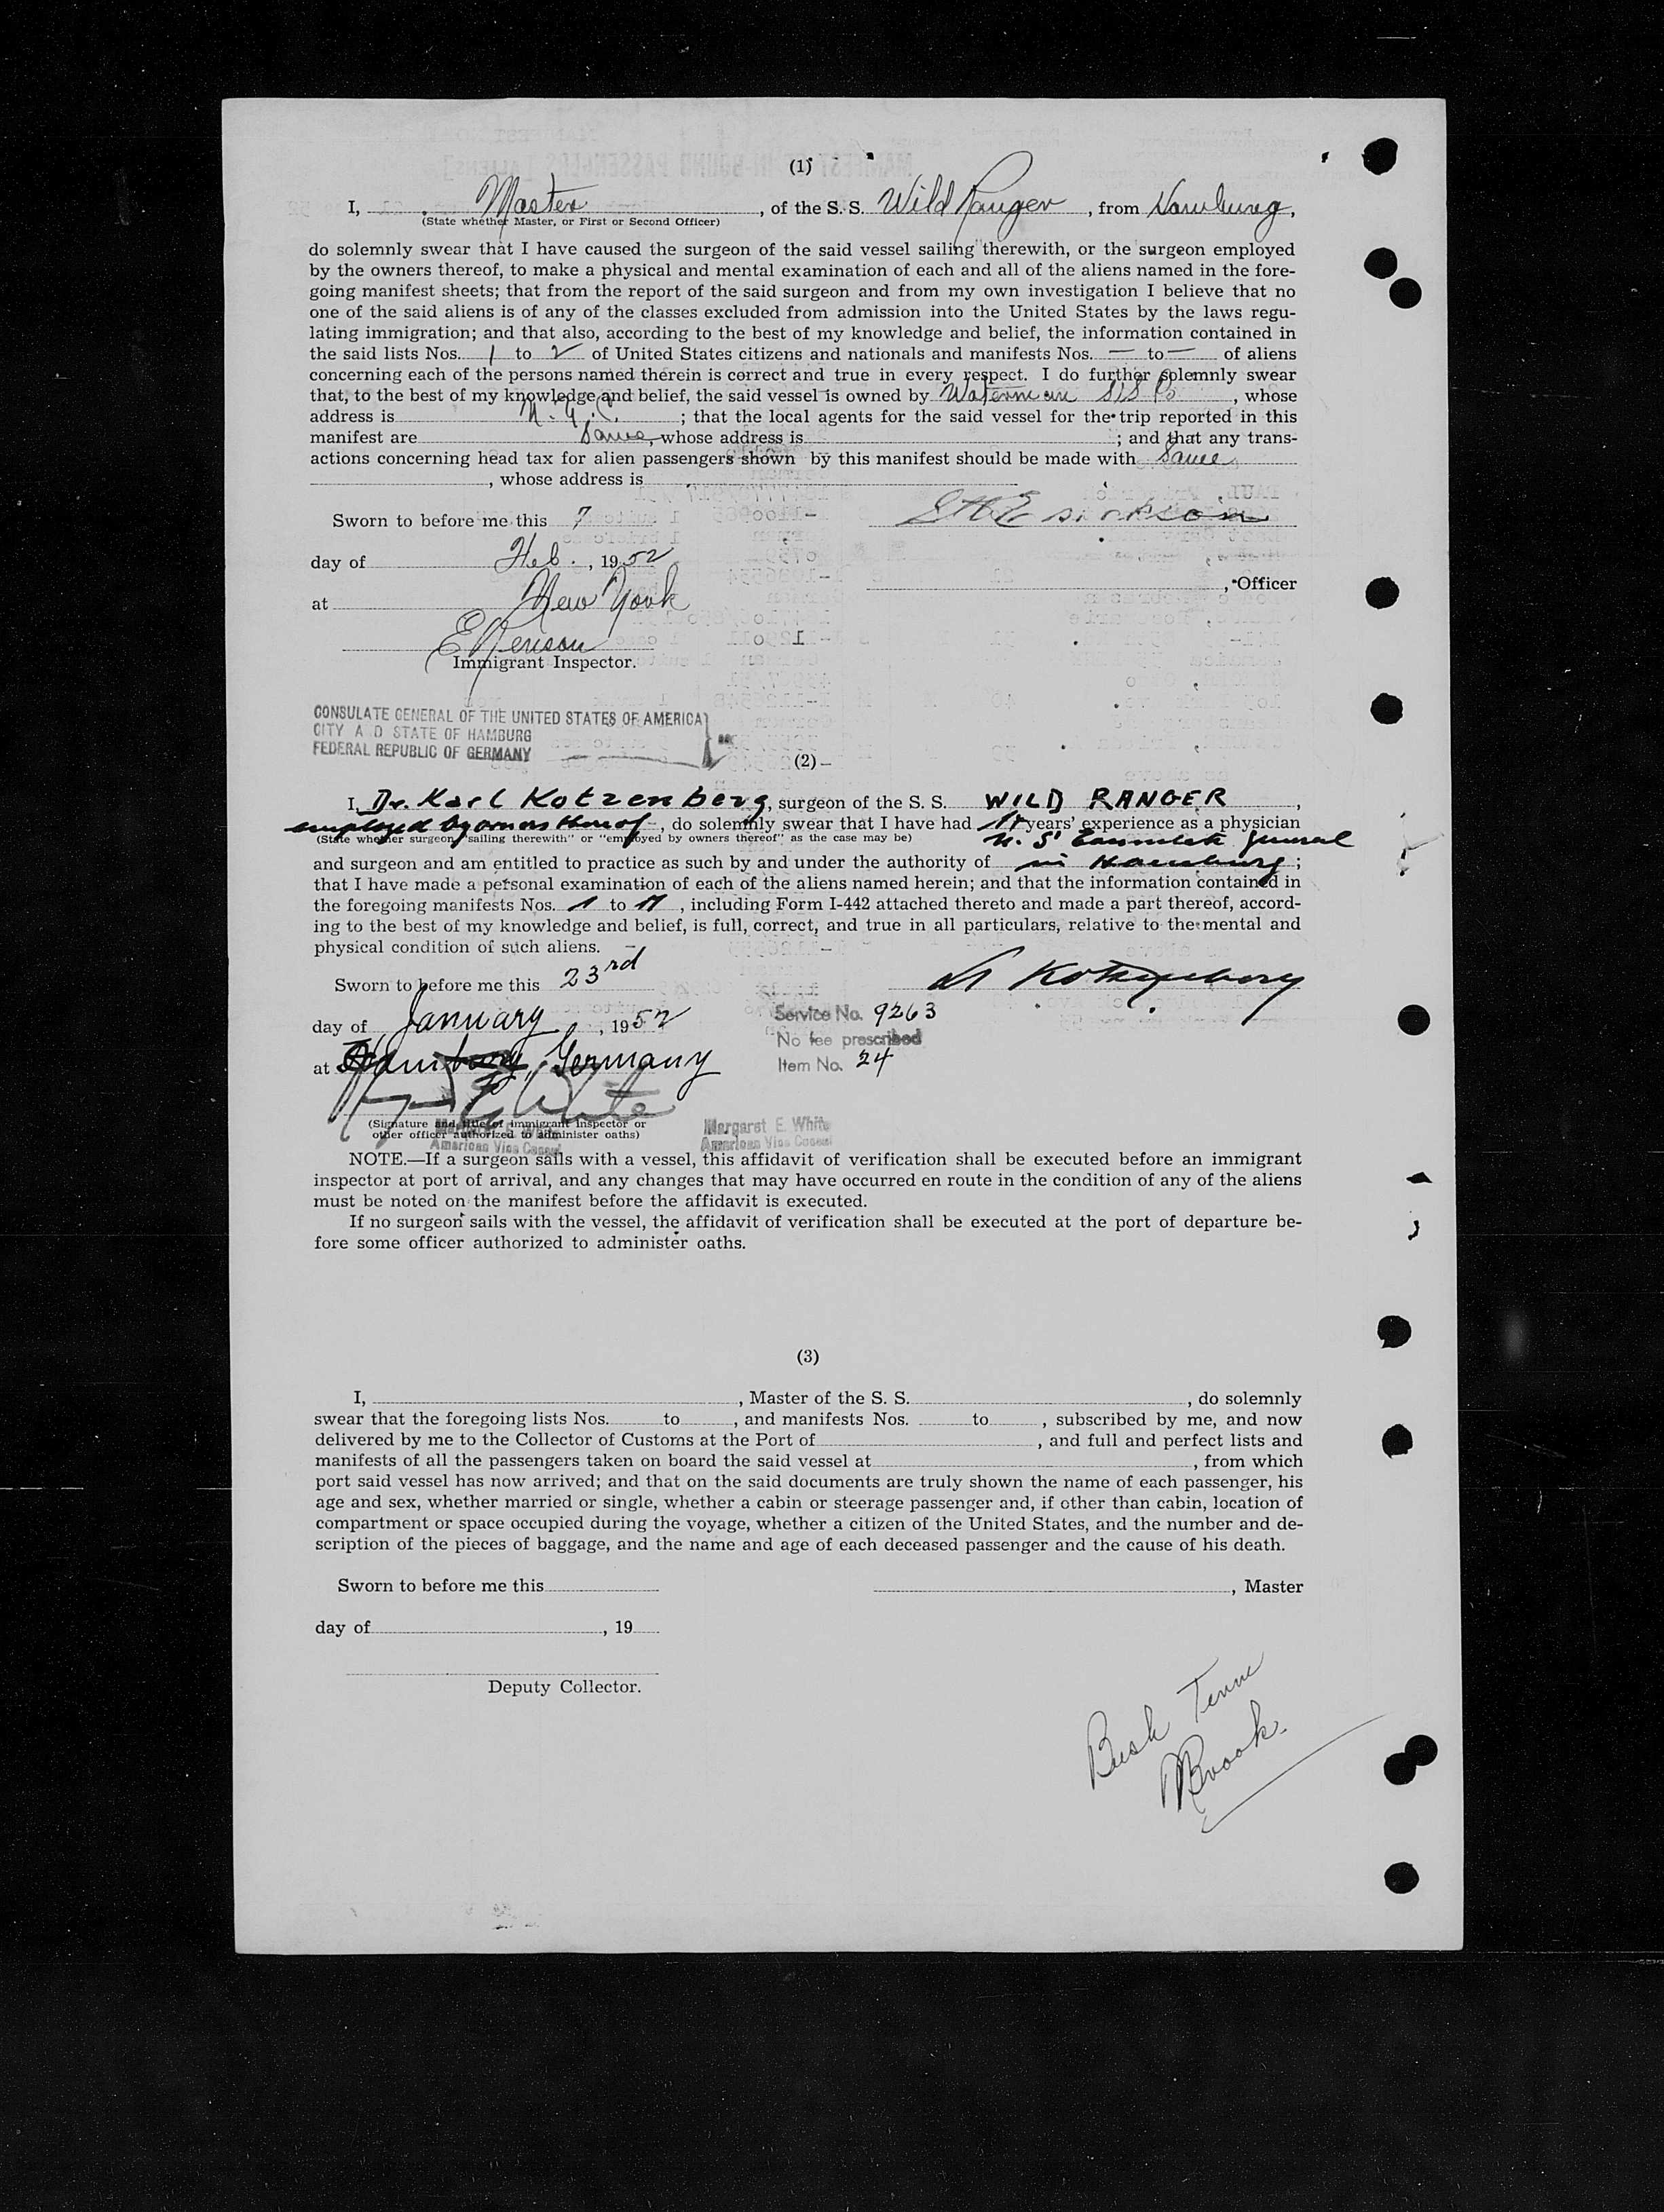 (1)
I, Master, of the S. S. Wild Ranger, from Hamburg,
(State whether Master, or First or Second Officer)
do solemnly swear that I have caused the surgeon of the said vessel sailing therewith, or the surgeon employed
by the owners thereof, to make a physical and mental examination of each and all of the aliens named in the fore-
going manifest sheets; that from the report of the said surgeon and from my own investigation I believe that no
one of the said aliens is of any of the classes excluded from admission into the United States by the laws regu-
lating immigration; and that also, according to the best of my knowledge and belief, the information contained in
the said lists Nos. 1 to 2 of United States citizens and nationals and manifests Nos. — to — of aliens
concerning each of the persons named therein is correct and true in every respect. I do further solemnly swear
that, to the best of my knowledge and belief, the said vessel is owned by Waterman, whose
address is N.Y.C.; that the local agents for the said vessel for the trip reported in this
manifest are Same, whose address is; and that any trans-
actions concerning head tax for alien passengers shown by this manifest should be made with Same
, whose address is
Sworn to before me this 7
day of Feb., 1952
, Officer
at New York
Immigrant Inspector.
CONSULATE GENERAL OF THE UNITED STATES OF AMERICA
CITY A D STATE OF HAMBURG
FEDERAL REPUBLIC OF GERMANY
(2)
I, Dr. Karl Kotzenberg, surgeon of the S. S. WILD RANGER,
employed by owners thereof, do solemnly swear that I have had years' experience as a physician
(State whether surgeon "sailing therewith" or "employed by owners thereof" as the case may be)
U. S. Consulate General
and surgeon and am entitled to practice as such by and under the authority of in Hamburg;
that I have made a personal examination of each of the aliens named herein; and that the information contained in
the foregoing manifests Nos. 1 to, including Form I-442 attached thereto and made a part thereof, accord-
ing to the best of my knowledge and belief, is full, correct, and true in all particulars, relative to the mental and
physical condition of such aliens.
Sworn to before me this 23rd
Dr Kotzenberg
day of January, 1952
Service No. 9263
No fee prescribed
at Hamburg, Germany
Item No. 24
(Signature and title of immigrant inspector or
other officer authorized to administer oaths)
Margaret E. White
American Vice Consul
Margaret E. White
American Vice Consul
NOTE.—If a surgeon sails with a vessel, this affidavit of verification shall be executed before an immigrant
inspector at port of arrival, and any changes that may have occurred en route in the condition of any of the aliens
must be noted on the manifest before the affidavit is executed.
If no surgeon sails with the vessel, the affidavit of verification shall be executed at the port of departure be-
fore some officer authorized to administer oaths.
(3)
I, , Master of the S. S. , do solemnly
swear that the foregoing lists Nos. to , and manifests Nos. to , subscribed by me, and now
delivered by me to the Collector of Customs at the Port of , and full and perfect lists and
manifests of all the passengers taken on board the said vessel at , from which
port said vessel has now arrived; and that on the said documents are truly shown the name of each passenger, his
age and sex, whether married or single, whether a cabin or steerage passenger and, if other than cabin, location of
compartment or space occupied during the voyage, whether a citizen of the United States, and the number and de-
scription of the pieces of baggage, and the name and age of each deceased passenger and the cause of his death.
Sworn to before me this
, Master
day of , 19
Deputy Collector.
Bush Term
Brook.